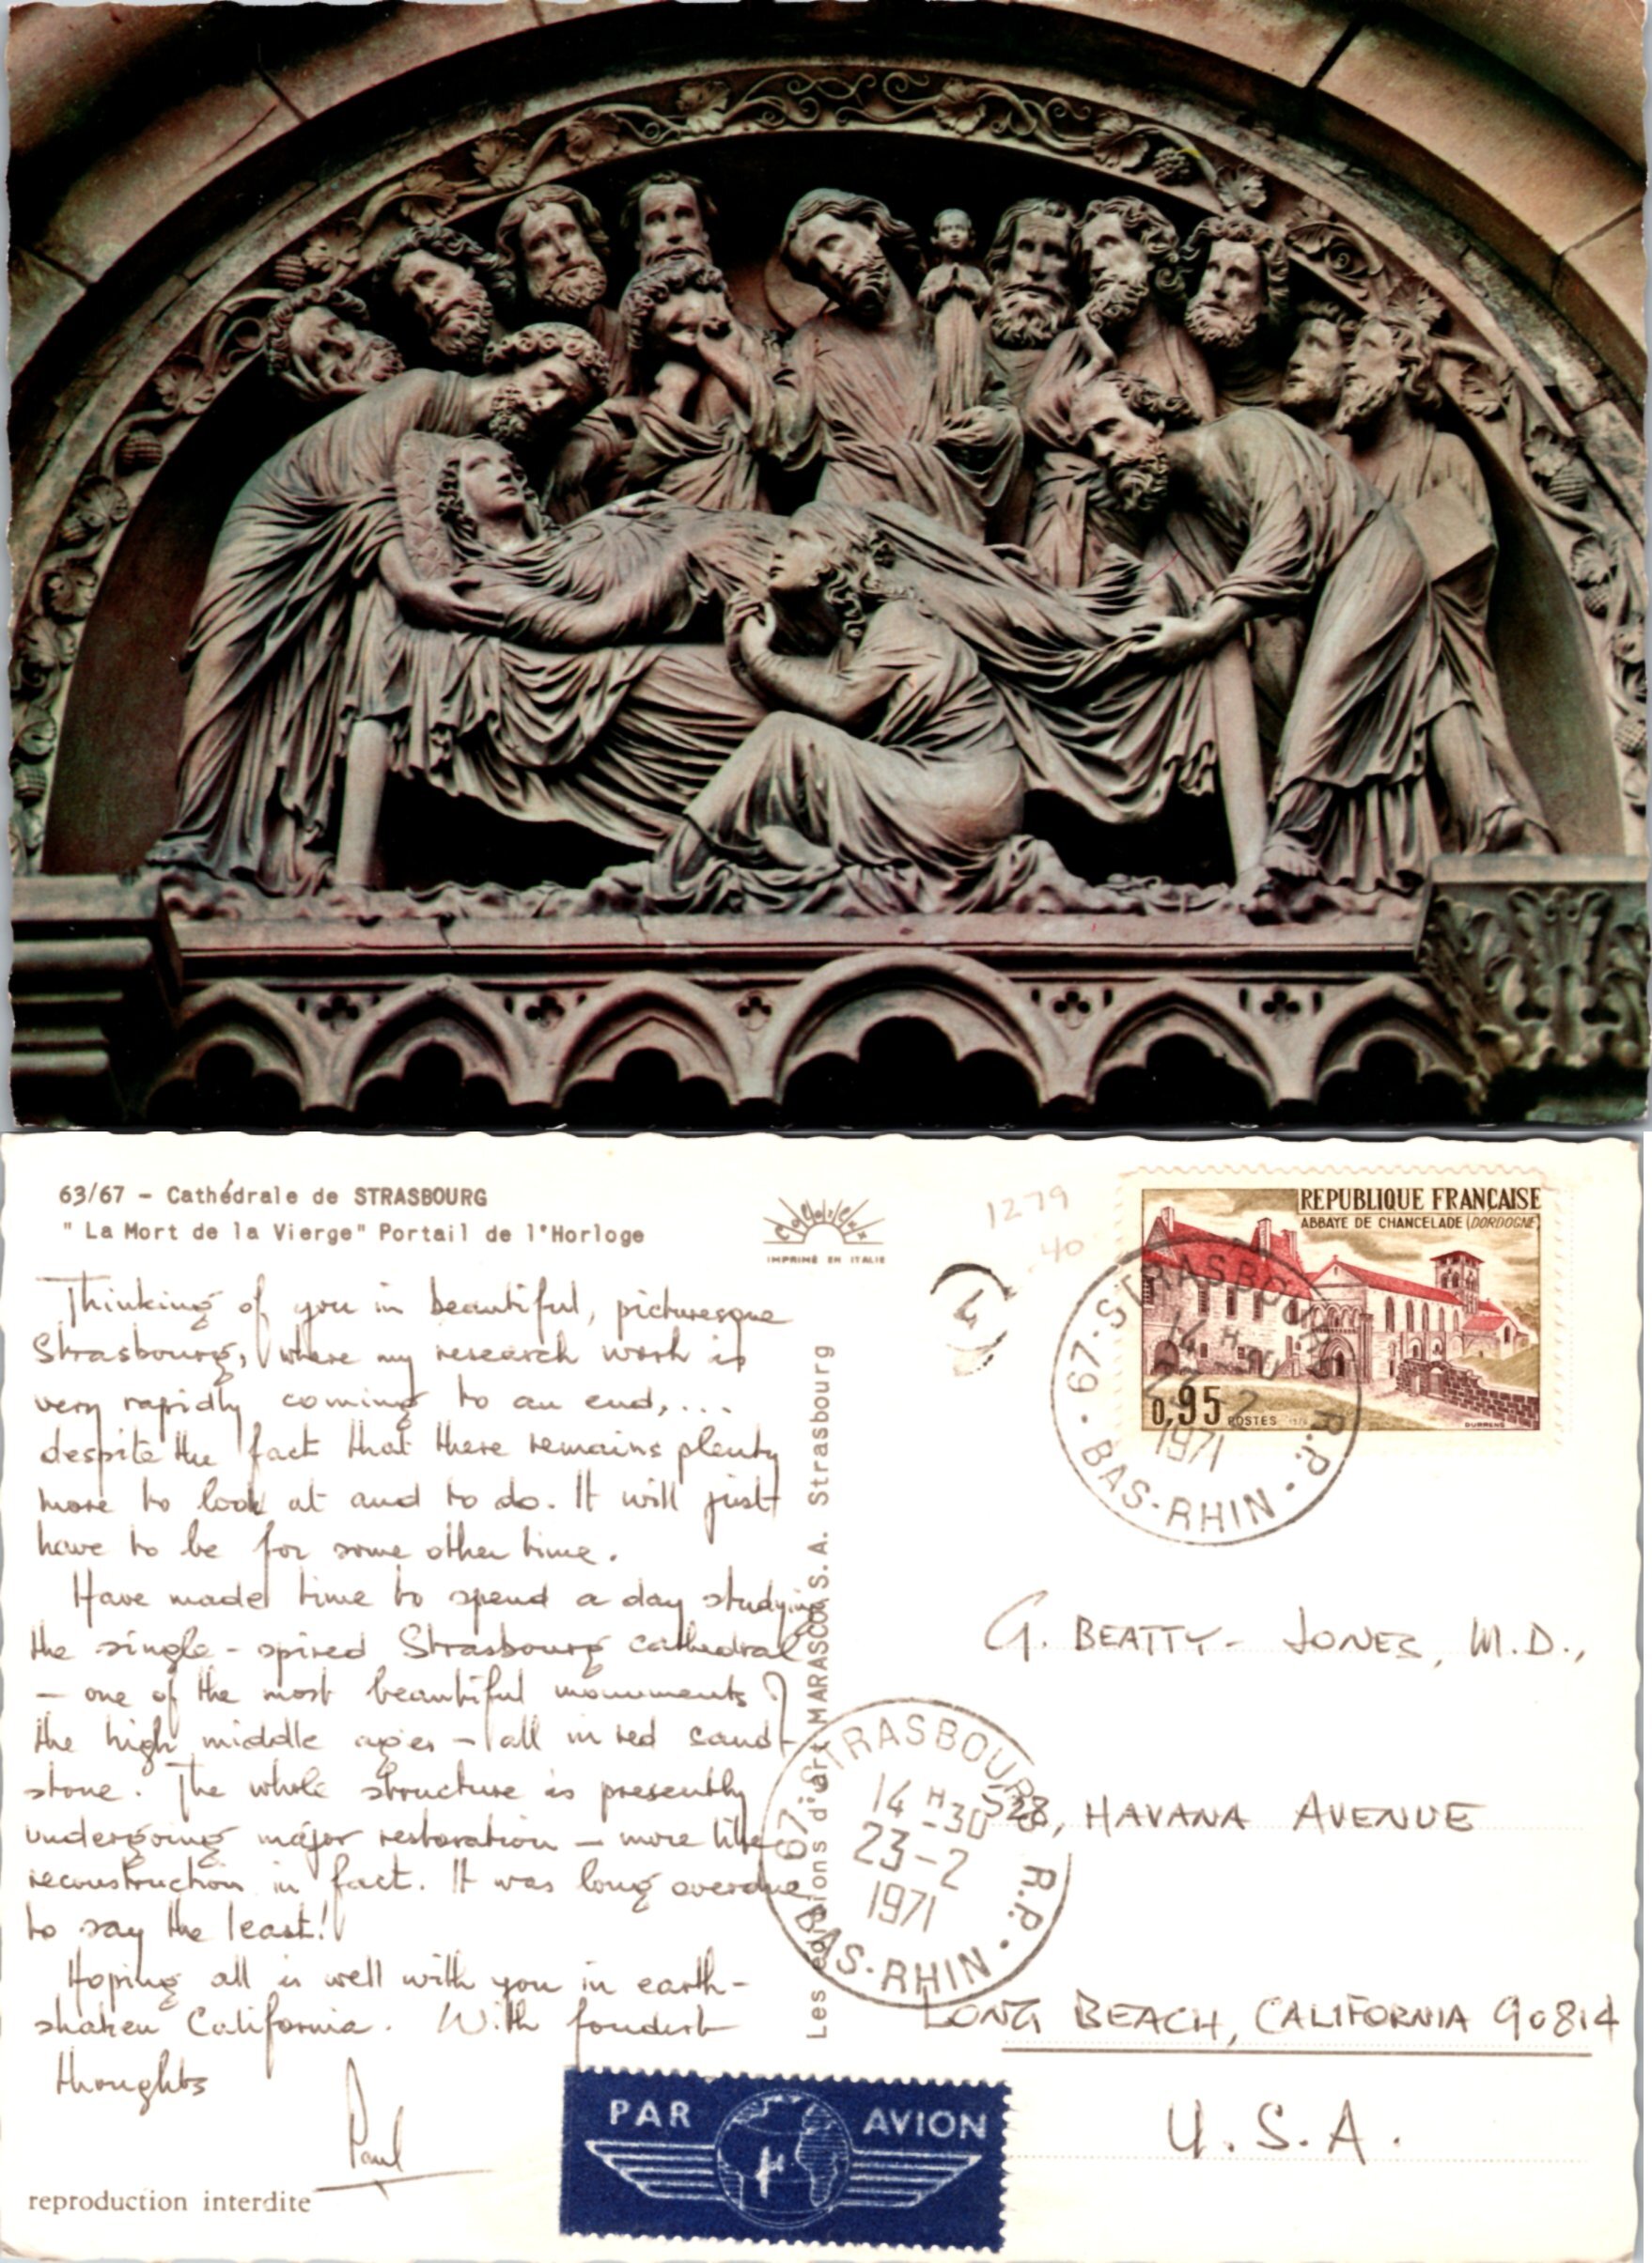 63/67 - Cathédrale de STRASBOURG
" La Mort de la Vierge" Portail de l'Horloge
Colorlux
IMPRIMÉ EN ITALIE
1279
40
4
REPUBLIQUE FRANÇAISE
ABBAYE DE CHANCELADE (DORDOGNE)
0,95 POSTES
DURRENS
67 · STRASBOURG R.P. · BAS-RHIN ·
14 H 30
23-2
1971
Thinking of you in beautiful, picturesque
Strasbourg, where my research work is
very rapidly coming to an end,...
despite the fact that there remains plenty
more to look at and to do. It will just
have to be for some other time.
Have made time to spend a day studying
the single-spired Strasbourg cathedral
- one of the most beautiful monuments of
the high middle ages - all in red sand-
stone. The whole structure is presently
undergoing major restoration - more like
reconstruction in fact. It was long overdue
to say the least!
Hoping all is well with you in earth-
shaken California. With fondest
thoughts
Paul
reproduction interdite
Les éditions d'art MARASCO S. A. Strasbourg
67 · STRASBOURG R.P. · BAS-RHIN ·
14 H 30
23-2
1971
G. BEATTY-JONES, M.D.,
528, HAVANA AVENUE
LONG BEACH, CALIFORNIA 90814
U.S.A.
PAR AVION